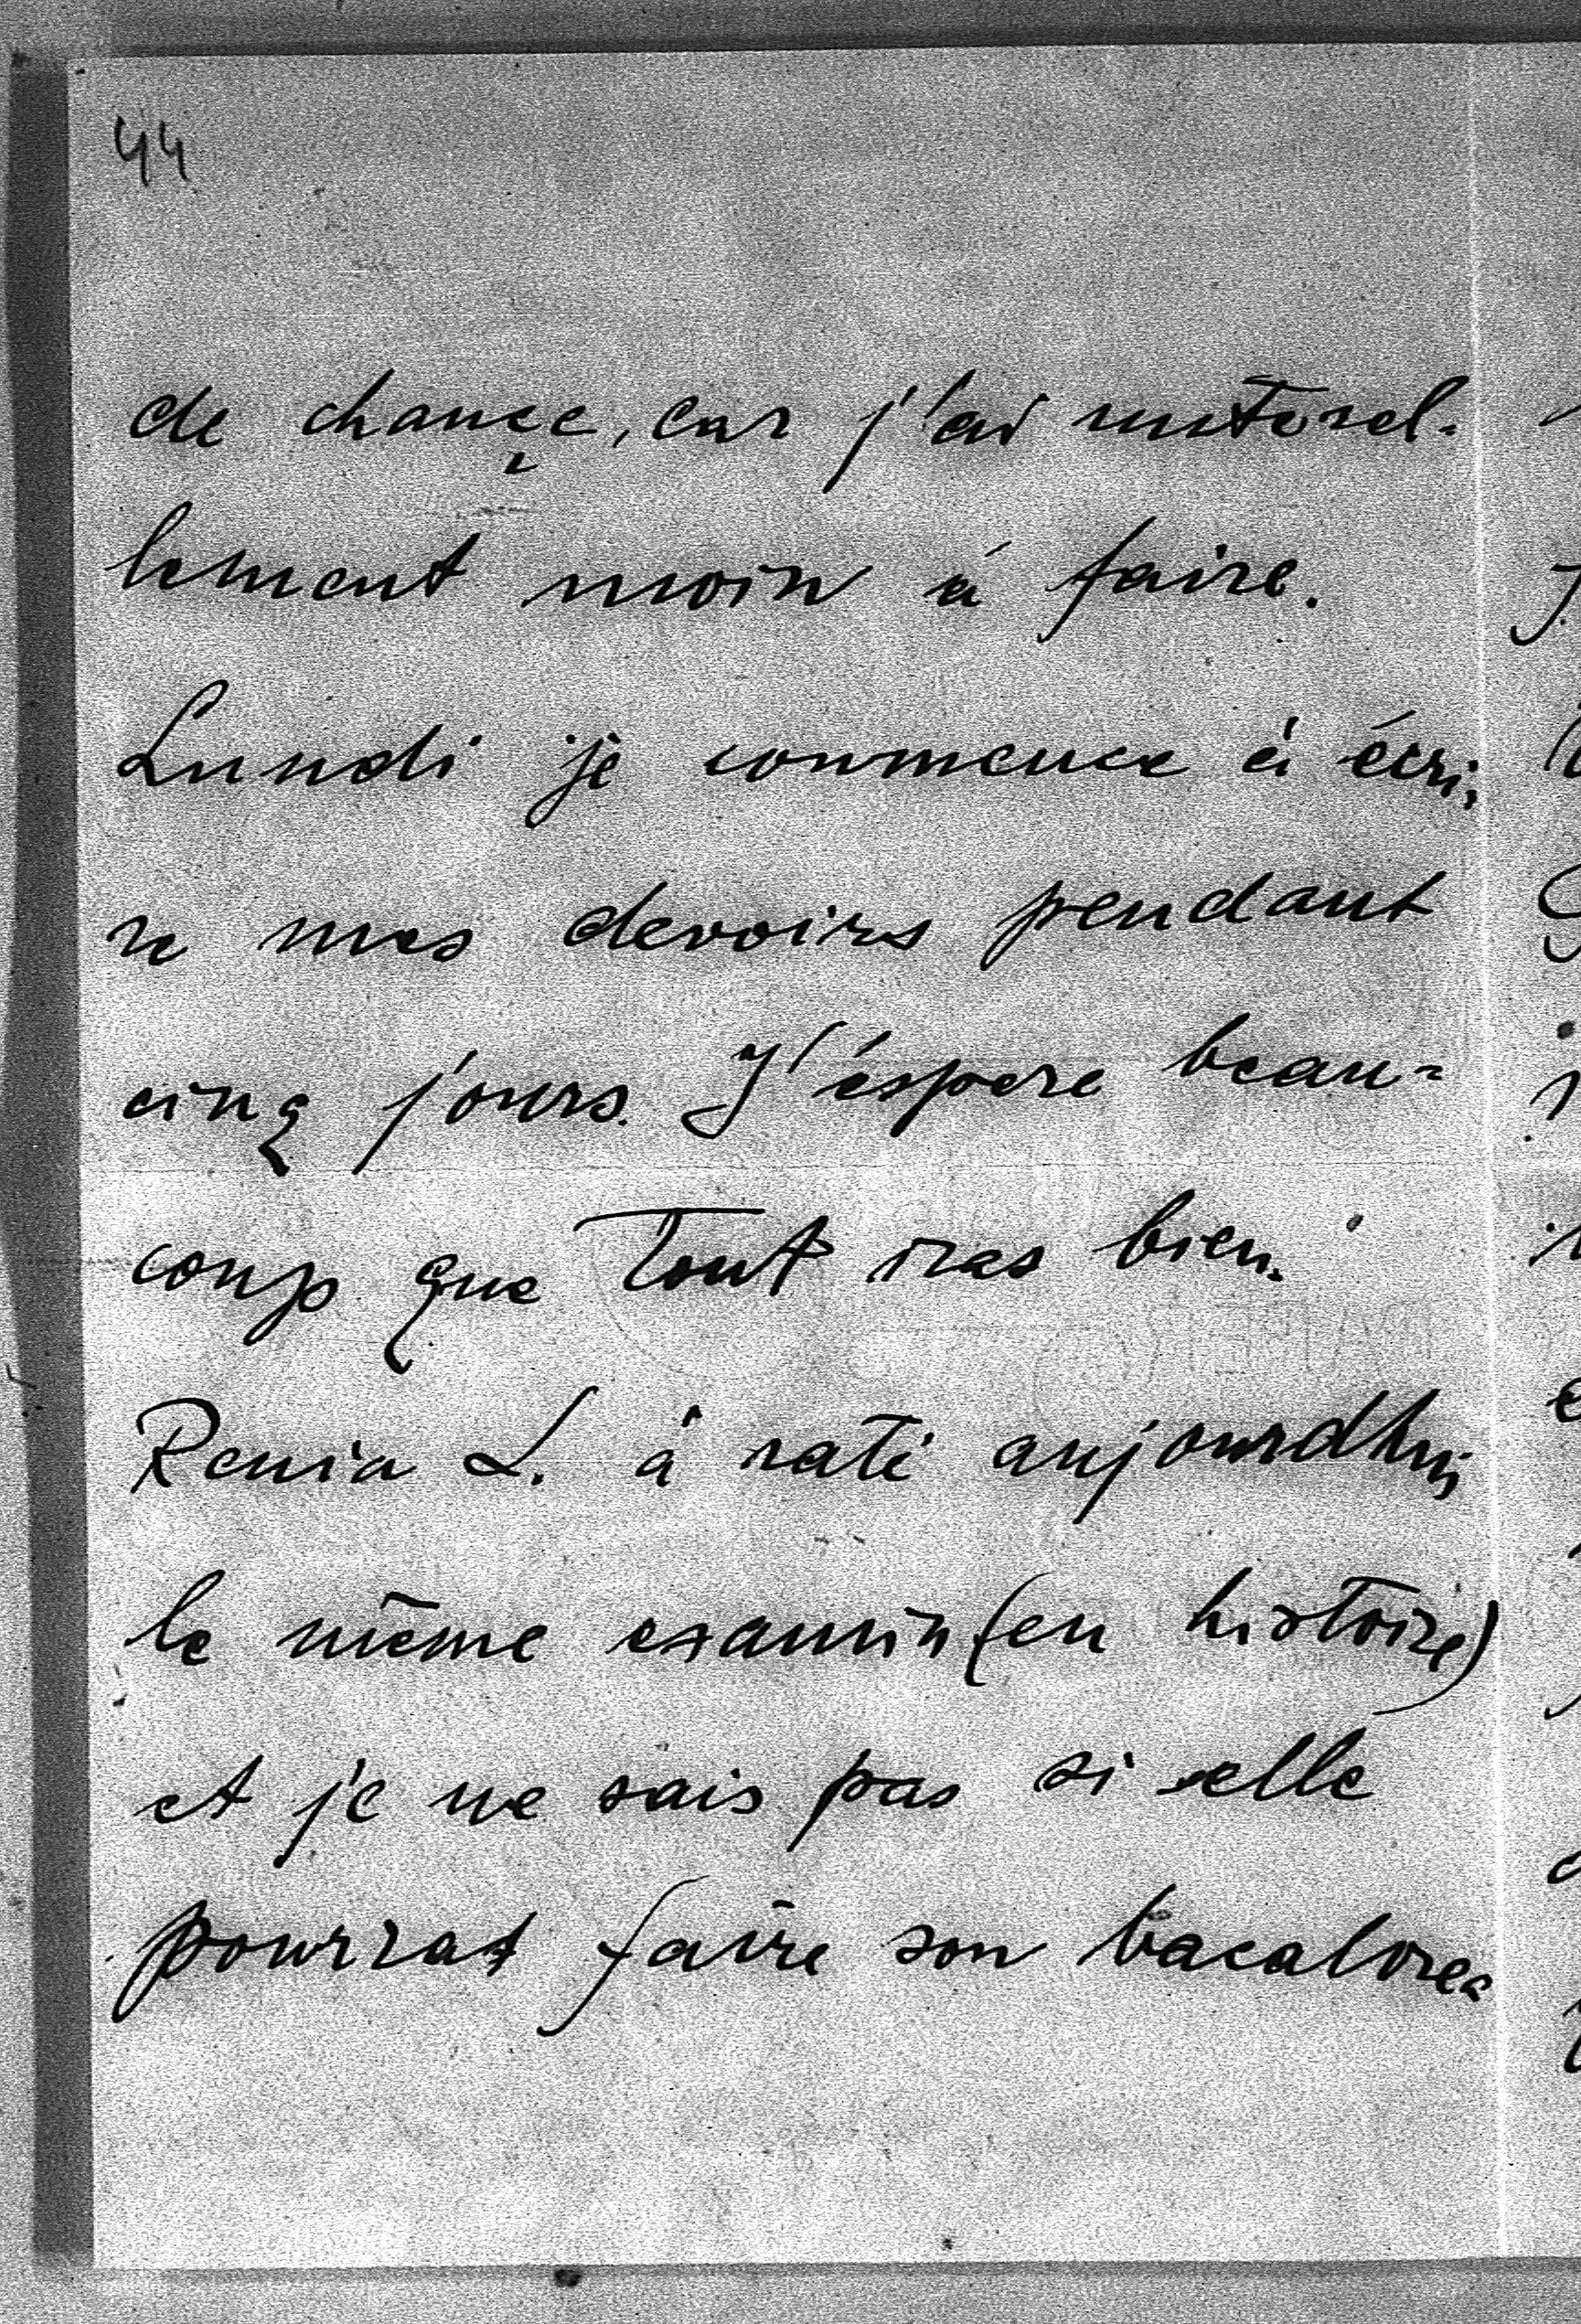 44
de chançe, car j'ai natorel-
lement moin à faire.
Lundi je conmence à écri-
re mes devoirs pendant
cinq jours. J'éspere beau-
coup que tout iras bien.
Renia L. à raté aujourdhui
le même examin (en histoire)
et je ne sais pas si elle
pourrat faire son bacalorea